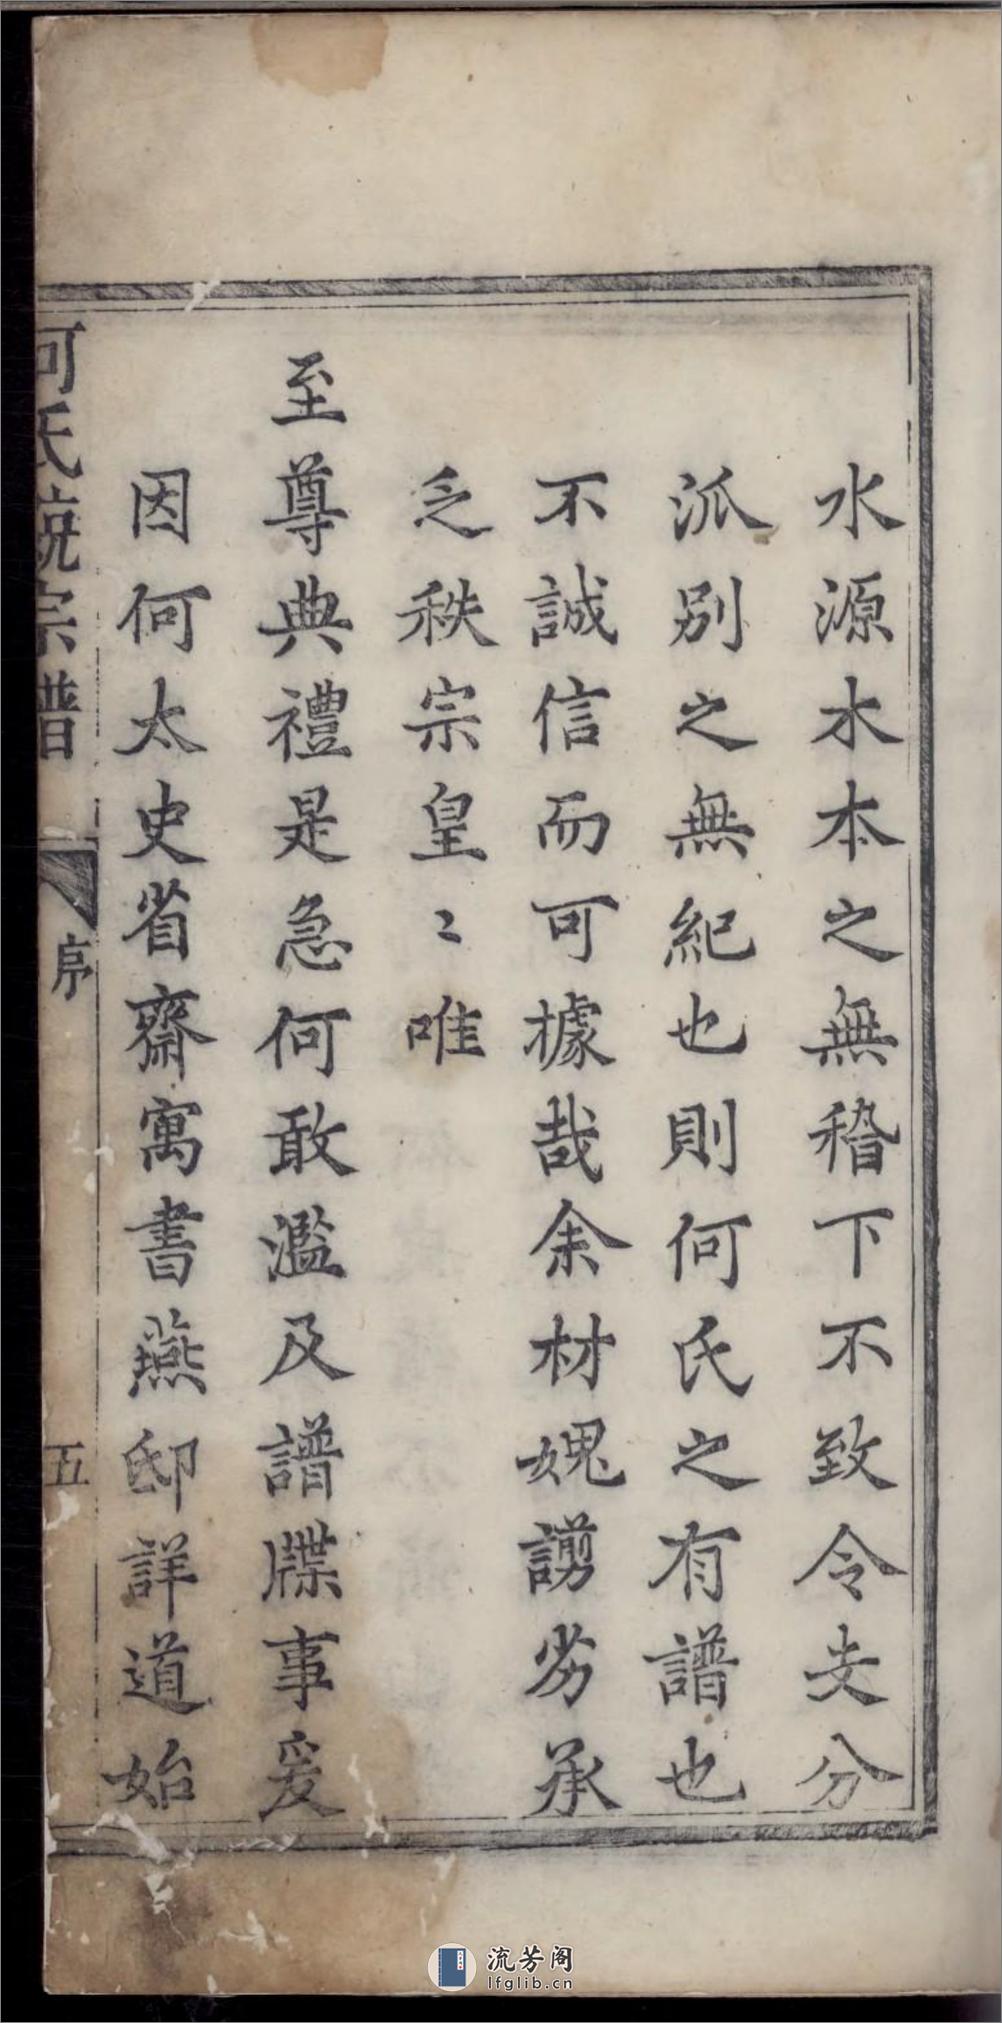 水源水本之無稽下不致令支分
派别之無紀也則何氏之有譜也
不誠信而可據哉余材媿謭劣承
乏秩宗皇〻唯
至尊典禮是急何敢濫及譜牒事爰
因何太史省齋寓書燕邸詳道始
何氏統宗譜
序
五
流芳阁
lfglib.cn